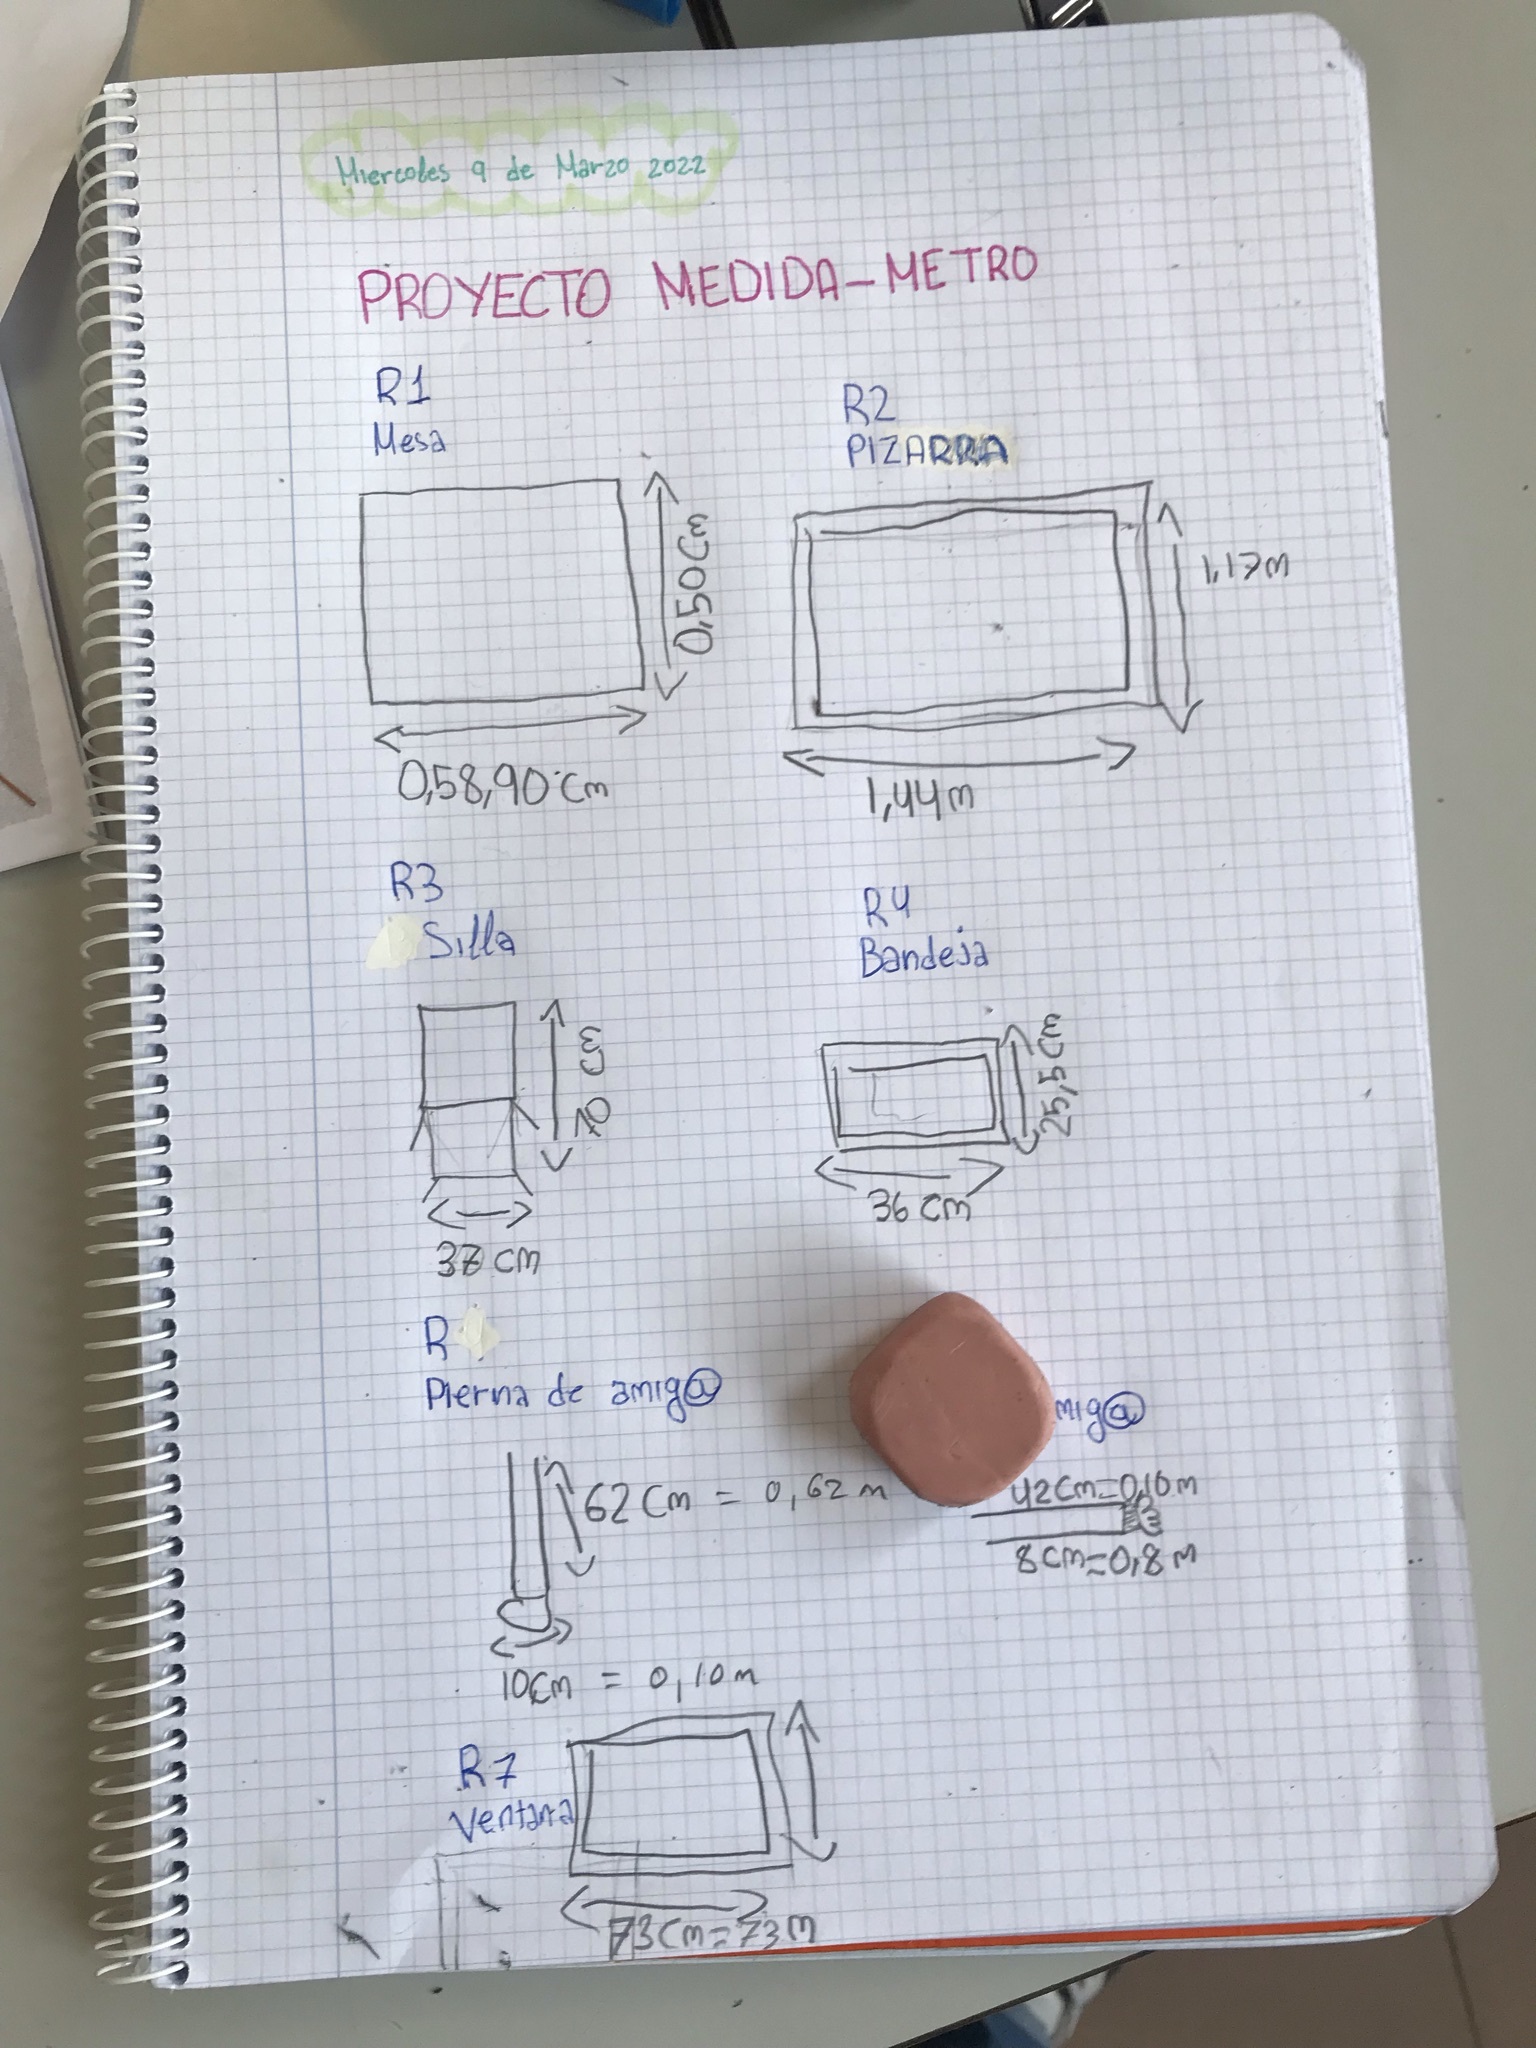 Miercoles 9 de Marzo 2022
PROYECTO MEDIDA-METRO
R1
Mesa
0,50Cm
0,58,90 Cm
R2
PIZARRA
1,17m
1,44m
R3
Silla
70 cm
37 cm
R4
Bandeja
25,5Cm
36 cm
R
Pierna de amig@
62 Cm = 0,62 m
10Cm = 0,10m
mig@
42Cm=0,10m
8cm=0,8m
R7
Ventana
73Cm=73m